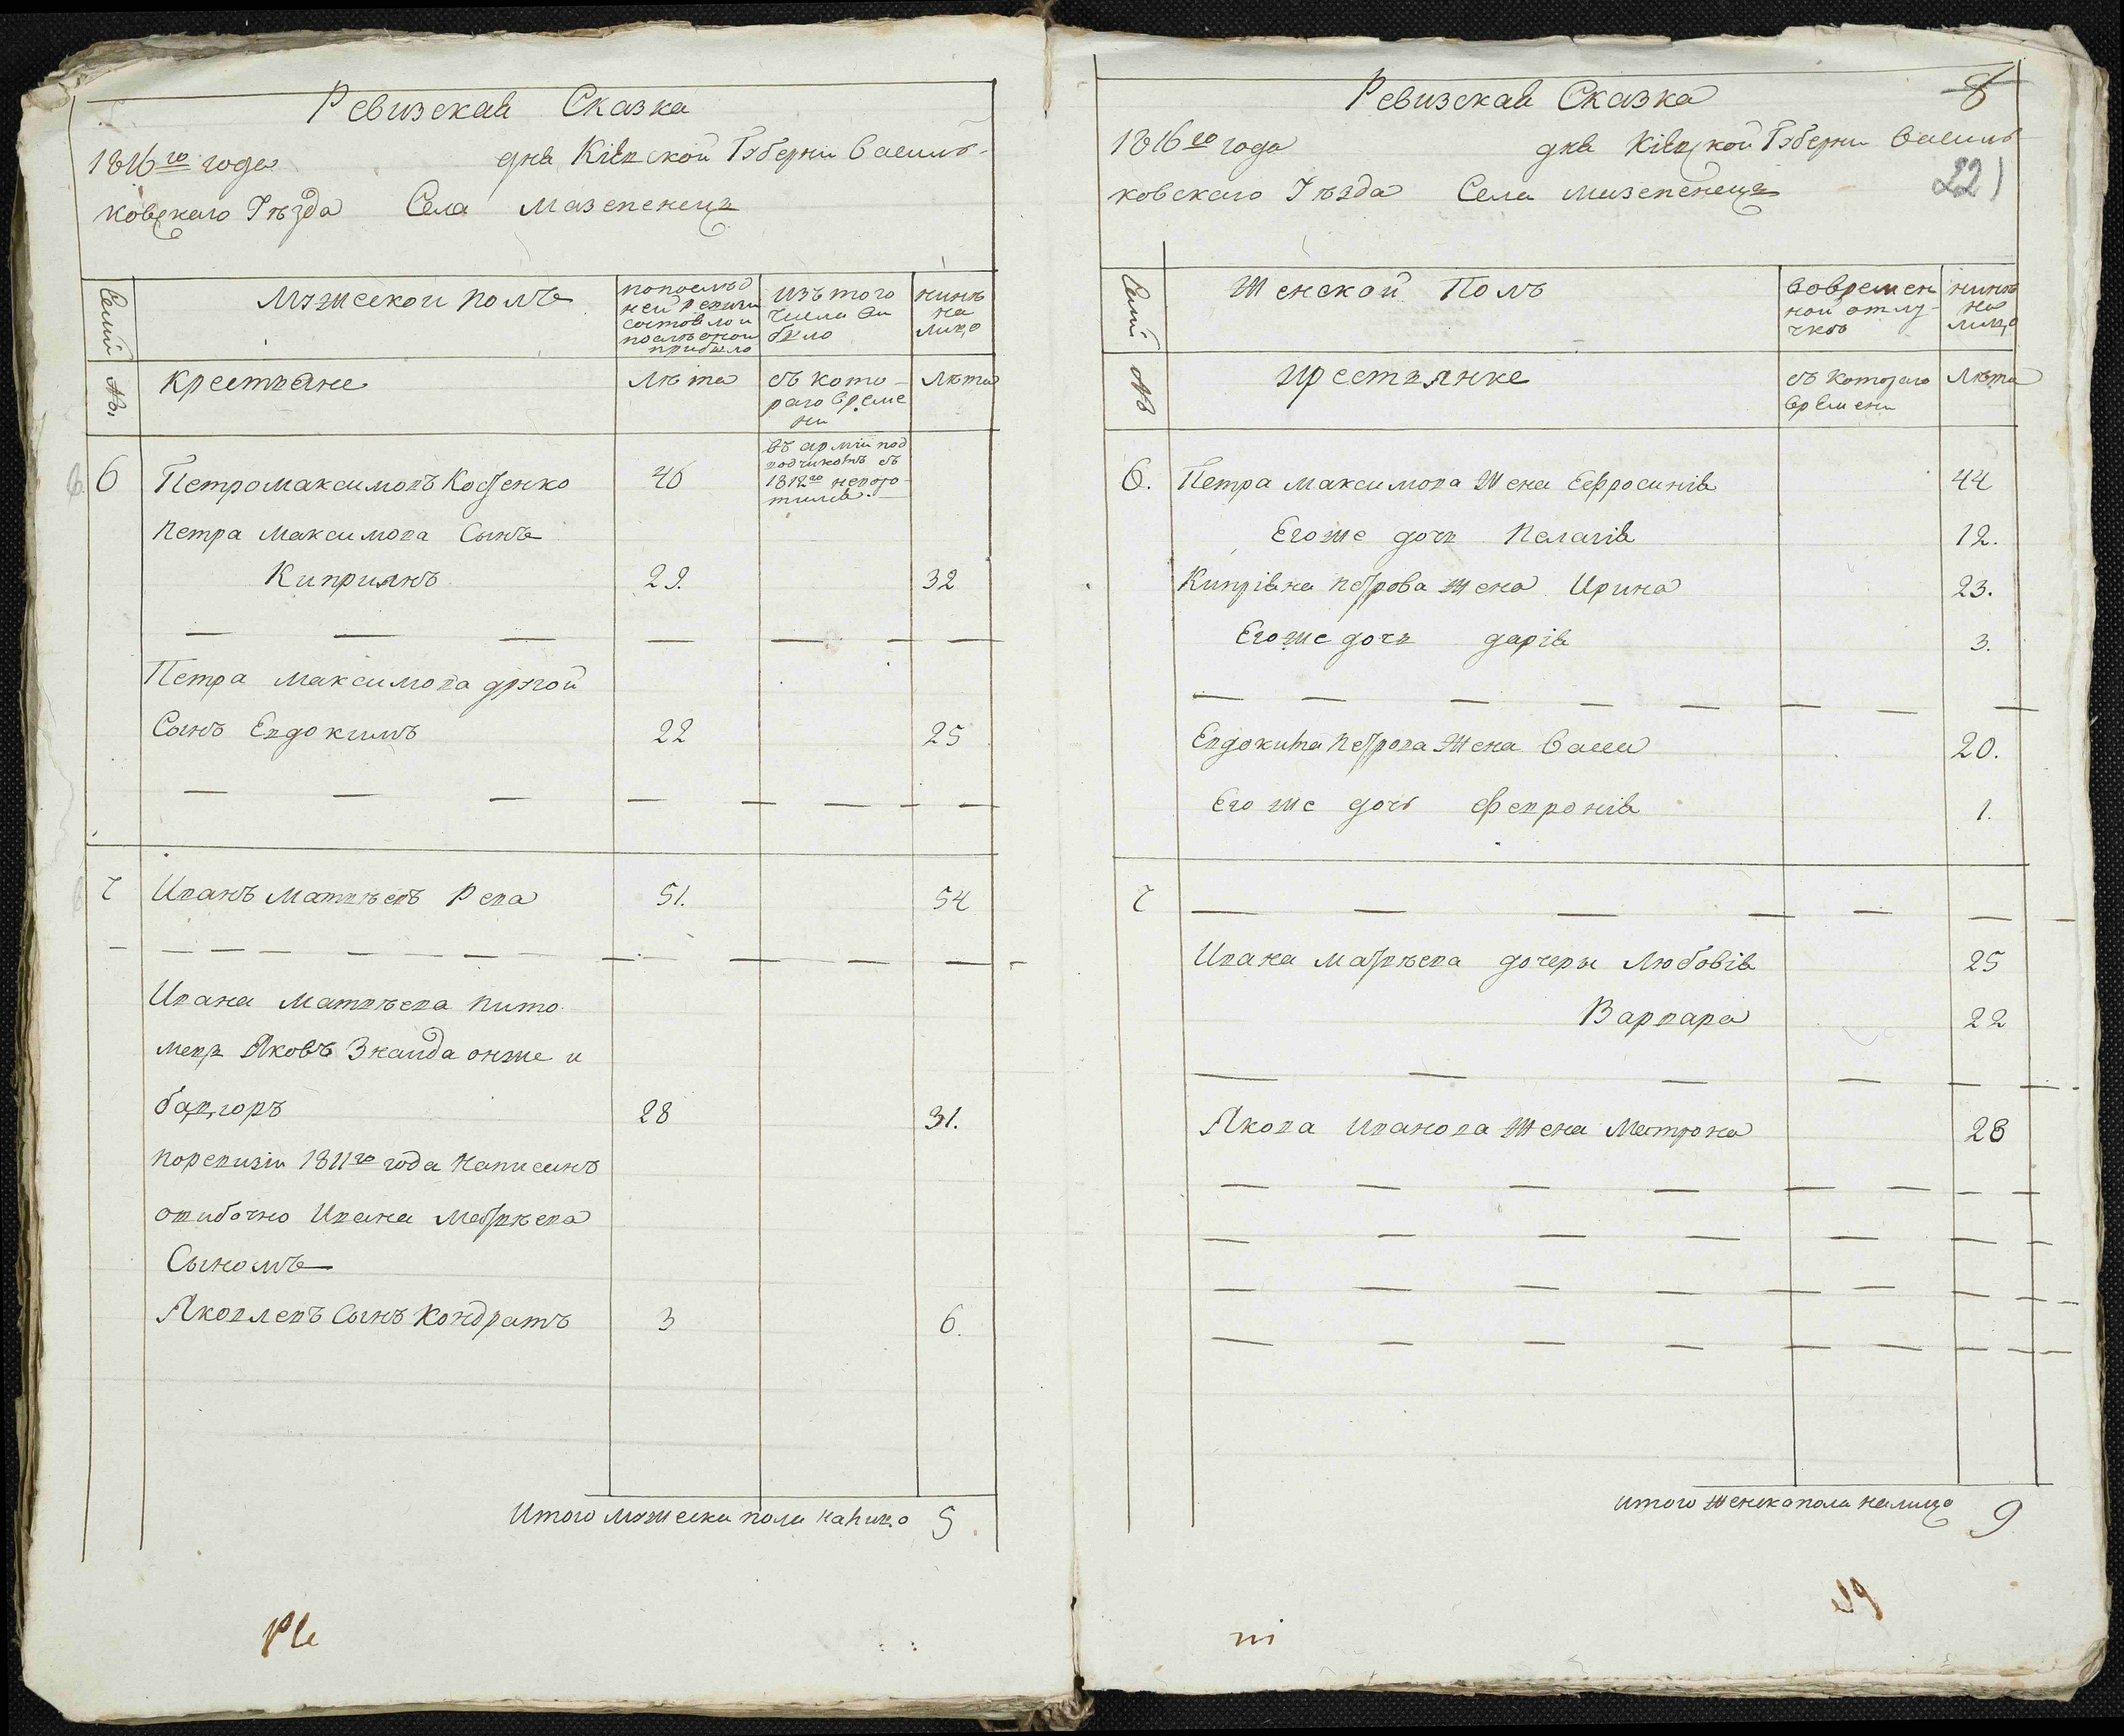 Ревизская Сказка
1816го года дня Кіевской Губерніи Василь-
ковскаго Уѣзда Села Мазепенецъ
Семіи Мужескои полъ попослѣд ней ревизіи состояло и послѣ оной прибыло изъ того числа вы было нинѣ на лицо
№. крестьяне лѣта съ кото- раго време ни лѣта
6 Петро Максимовъ Костенко 46 въ арміи под водчикомъ съ 1812го неворо- тился
Петра Максимова Сынъ
Киприянъ 29. 32
Петра Максимова другой
Сынъ Евдокимъ 22 25
7 Иванъ Матвѣевъ Рева 51. 54
Ивана Матвѣева пито-
мецъ Яковъ Знайда онже и
28 31.
поревизіи 1811го года написанъ
ошибочно Ивана Матвѣева
Сыномъ
Яковлевъ Сынъ Кондратъ 3 6.
Итого мужеска пола налицо 5
Ревизская Сказка 8
1816го года дня Кіевской Губерніи Василь
ковскаго Уѣзда Села Мазепенецъ 221
Семіи Женской Полъ вовремен ной отлу- чкѣ нинѣ на лицо
№ крестьянке съ котораго времени лѣта
6. Петра Максимова жена Евфросинія 44
Егоже дочь Пелагія 12.
Кипріяна Петрова жена Ирина 23.
Егоже дочь Дарія 3.
Евдокима Петрова жена Васса 20.
Егоже дочь Февронія 1.
7
Ивана Матвѣева дочеры Любовія 25
Варвара 22
Якова Иванова жена Матрона 28
Итого женска пола налицо 9